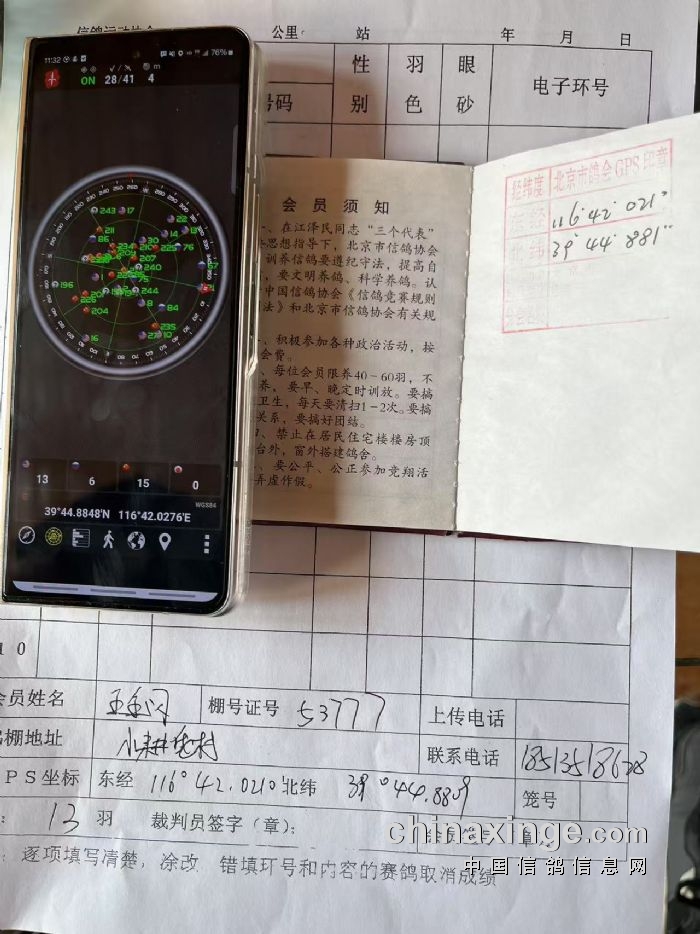 信鸽运动协会 公里 站 年 月 日
号码 性别 羽色 眼砂 电子环号
11:32 76%
ON 28/41 4
13 6 15 0
WGS84
39°44.8848'N 116°42.0276'E
会员须知
、在江泽民同志“三个代表”
思想指导下，北京市信鸽协会
训养信鸽要遵纪守法，提高自
，要文明养鸽、科学养鸽。认
中国信鸽协会《信鸽竞赛规则
法》和北京市信鸽协会有关规
、积极参加各种政治活动，按
会费。
、每位会员限养40-60羽，不
养，要早、晚定时训放。要搞
卫生，每天要清扫1-2次。要搞
关系，要搞好团结。
、禁止在居民住宅楼楼房顶
台外，窗外搭建鸽舍。
、要公平、公正参加竞翔活
弄虚作假。
经纬度 北京市鸽会GPS印章
东经 116°42.021"
北纬 39°44.881"
10
会员姓名 棚号证号 53777 上传电话
鸽棚地址 联系电话
GPS坐标 东经 116°42.021 北纬 39°44.88 笼号
: 13 羽 裁判员签字（章）：
: 逐项填写清楚，涂改、错填环号和内容的赛鸽取消成绩
chinaxinge.com
中国信鸽信息网